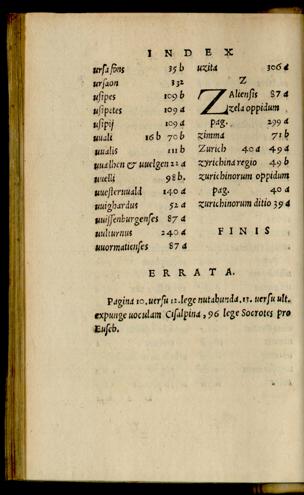 INDEX
ursa fons 35 b
ursaon 132
usipes 109 b
usipetes 109 a
usipij 109 a
uuali 16 b 70 b
uualis 111 b
uualhen & uuelgen 22 a
uuelli 98 b.
uuesteruuald 140 a
uuighardus 52 a
uuissenburgenses 87 a
uulturnus 240 a
uuormatienses 87 a
uzita 306 a
Z
ZAliensis 87 a
zela oppidum
pag. 299 a
zimma 71 b
Zurich 40 a 49 a
zyrichina regio 49 b
zurichinorum oppidum
pag. 40 a
zurichinorum ditio 39 a
FINIS
ERRATA.
Pagina 10. uersu 12. lege nutabunda. 13. uersu ult.
expunge uoculam Cisalpina, 96 lege Socrotes pro
Euseb.